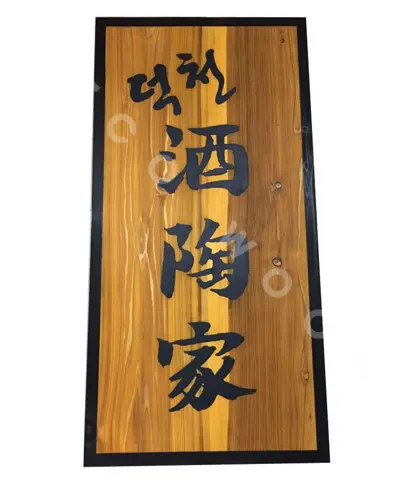 덕천
酒
陶
家